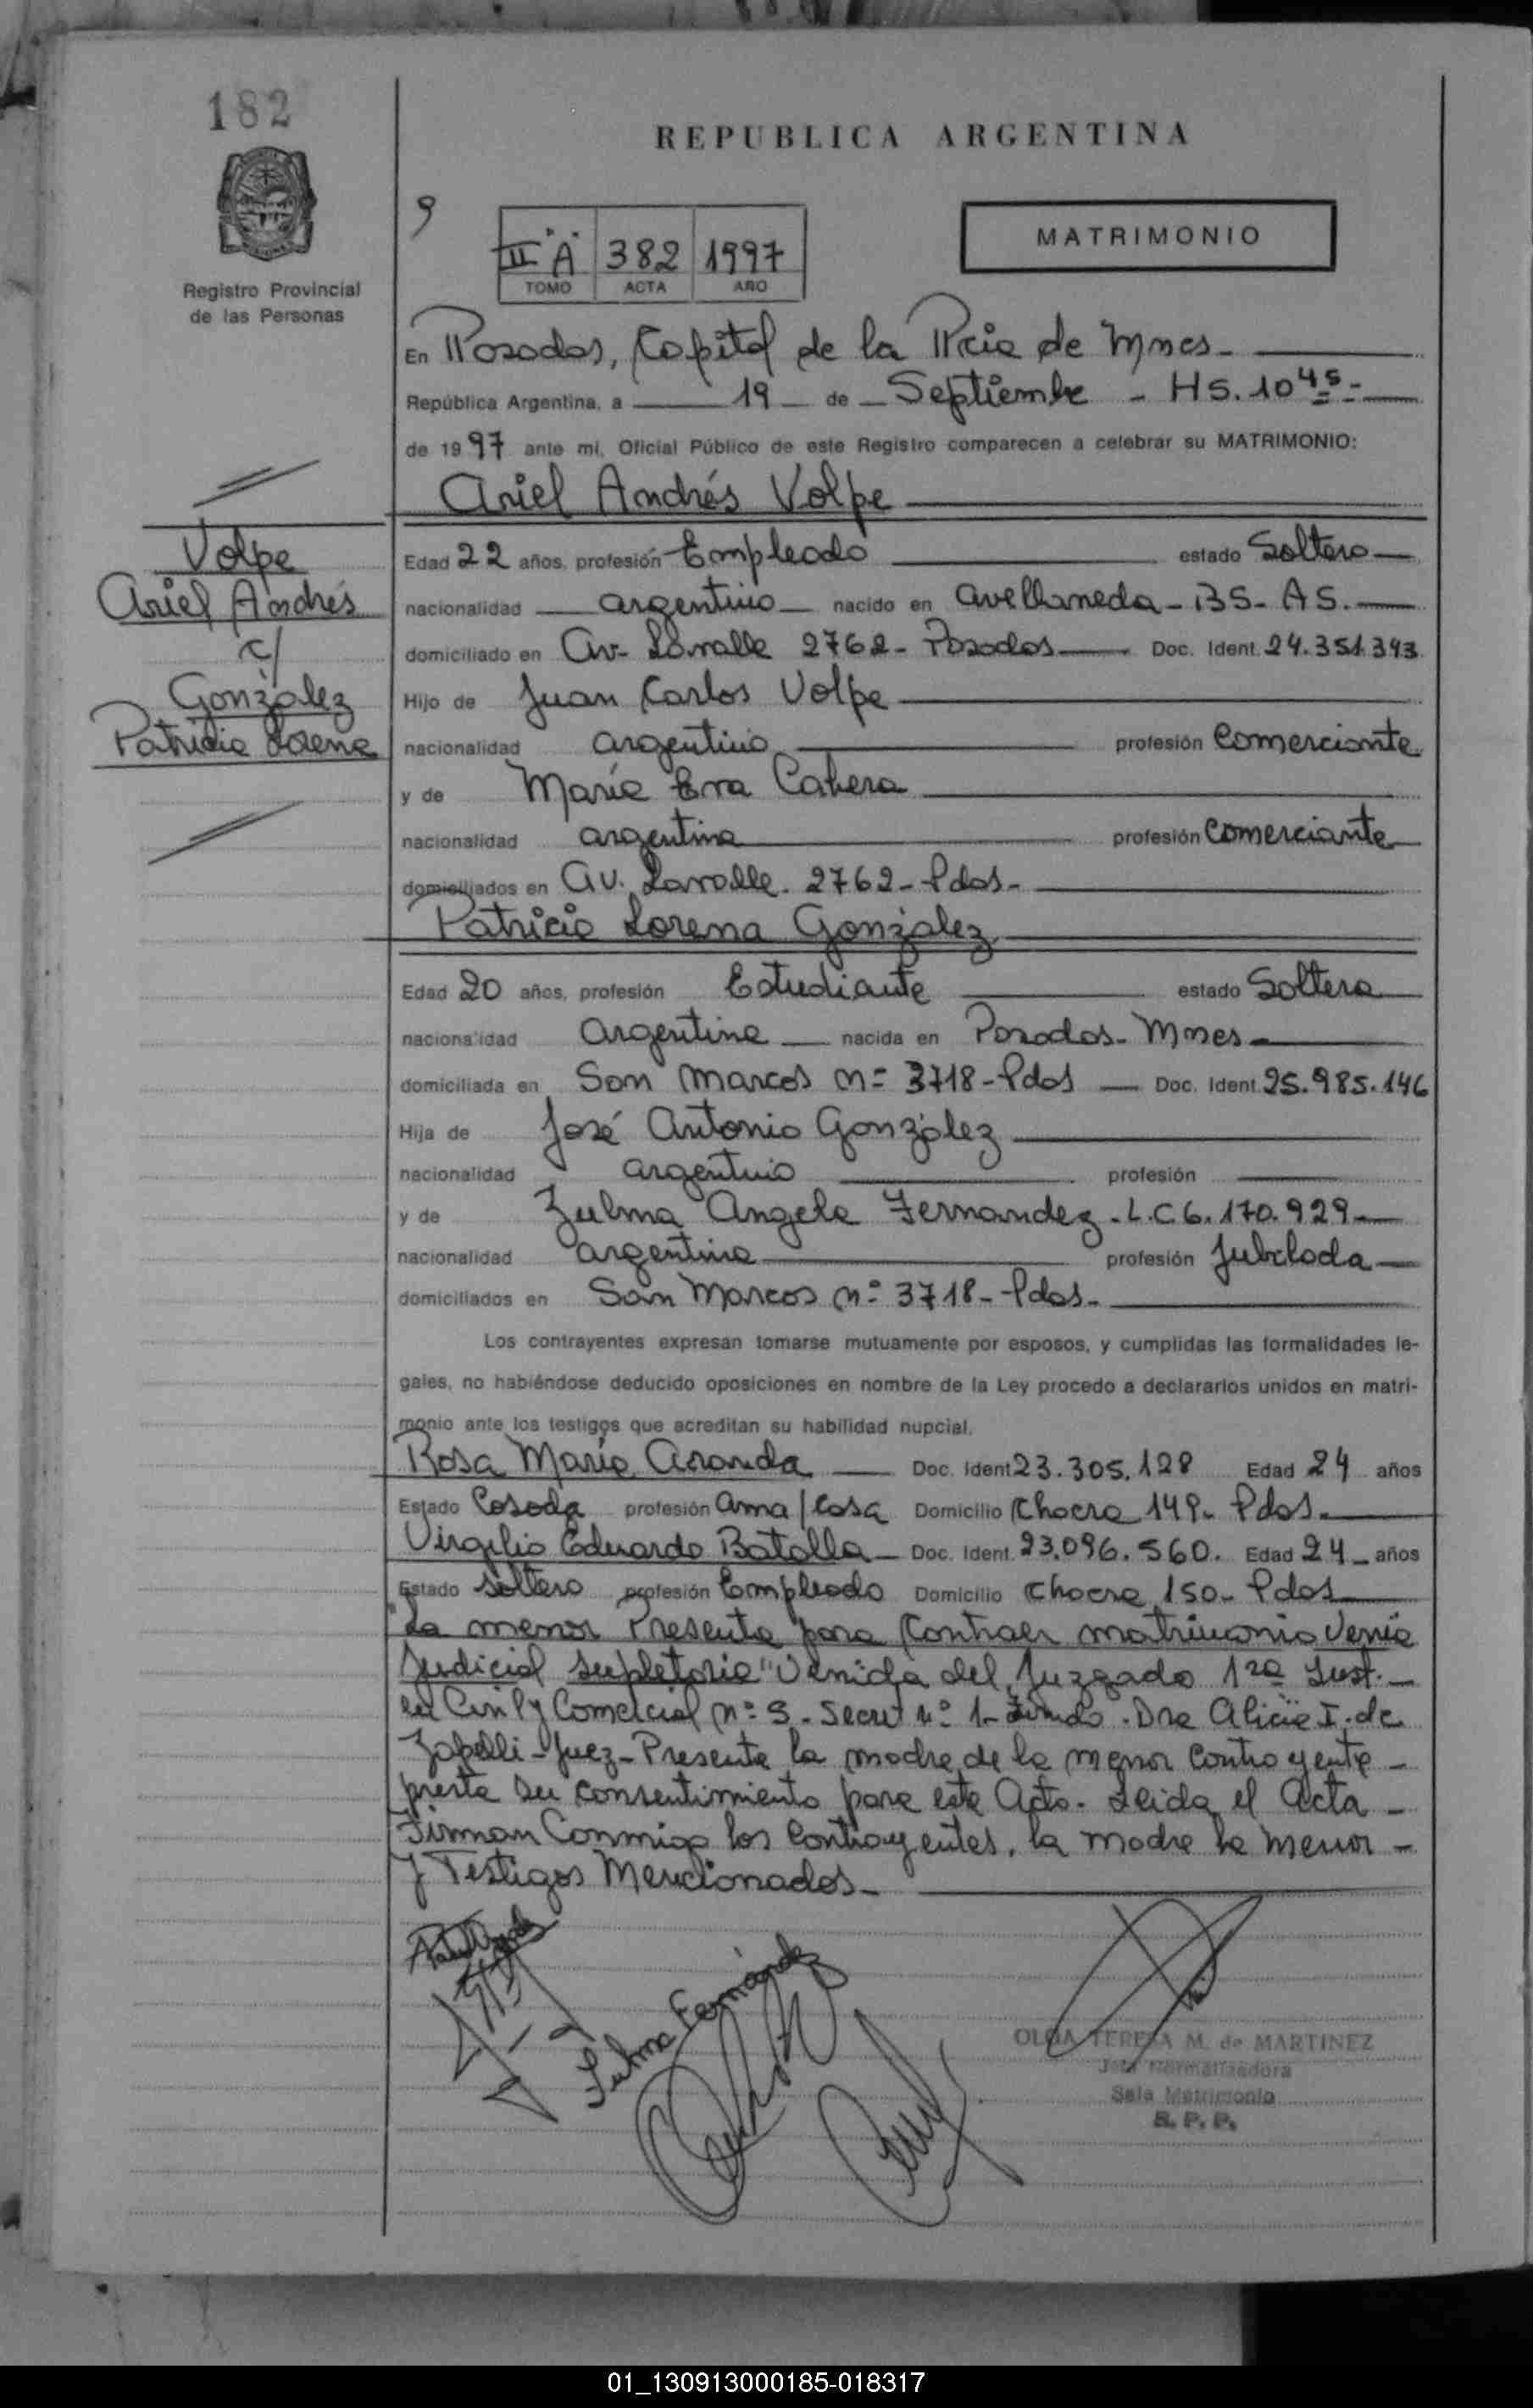 182
REPUBLICA ARGENTINA
9
II "A" 382 1997
TOMO ACTA AÑO
MATRIMONIO
Registro Provincial
de las Personas
En Posadas, Capital de la Pcia de Mnes-
República Argentina, a 19 de Septiembre - HS. 10 45-
de 1997 ante mí, Oficial Público de este Registro comparecen a celebrar su MATRIMONIO:
Ariel Andrés Volpe
Volpe
Ariel Andrés
c/
González
Patricia Lorena
Edad 22 años, profesión Empleado estado Soltero
nacionalidad argentino nacido en Avellaneda - BS - AS.
domiciliado en Av- Lavalle 2762 - Posadas Doc. Ident. 24.351.393
Hijo de Juan Carlos Volpe
nacionalidad argentino profesión Comerciante
y de María Eva Cabera
nacionalidad argentina profesión Comerciante
domiciliados en Av. Lavalle. 2762 - Pdas-
Patricia Lorena González
Edad 20 años, profesión Estudiante estado Soltera
nacionalidad Argentina nacida en Posadas - Mnes
domiciliada en San Marcos nº 3718 - Pdas Doc. Ident. 25.985.146
Hija de José Antonio González
nacionalidad argentino profesión
y de Zulma Angela Fernandez - L.C 6.170.929
nacionalidad argentina profesión Jubilada
domiciliados en San Marcos nº 3718 - Pdas-
Los contrayentes expresan tomarse mutuamente por esposos, y cumplidas las formalidades le-
gales, no habiéndose deducido oposiciones en nombre de la Ley procedo a declararlos unidos en matri-
monio ante los testigos que acreditan su habilidad nupcial.
Rosa María Aranda Doc. Ident 23.305.128 Edad 24 años
Estado Casada profesión Ama/casa Domicilio Chacra 149 - Pdas.
Virgilio Eduardo Batalla Doc. Ident. 23.096.560. Edad 24 años
Estado Soltero profesión Empleado Domicilio Chacra 150 - Pdas
"La menor Presenta para Contraer matrimonio Venia
Judicial Supletoria" Venida del Juzgado 1ra Inst.
en Civil y Comercial nº 3 - Secret nº 1 - Dra Alicia I. de
Juez - Presente la madre de la menor contrayente -
presta su consentimiento para este Acto. Leida el Acta -
Firman Conmigo los Contrayentes, la madre la menor -
y Testigos Mencionados-
Zulma Fernández
OLGA TERESA M. de MARTINEZ
Jefa Normalizadora
Sala Matrimonio
R. P. P.
01_130913000185-018317